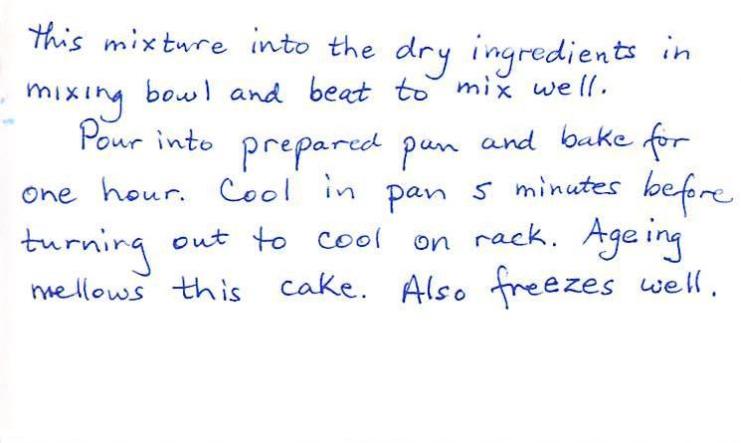 this mixture into the dry ingredients in
mixing bowl and beat to mix well.
Pour into prepared pan and bake for
one hour. Cool in pan 5 minutes before
turning out to cool on rack. Ageing
mellows this cake. Also freezes well.